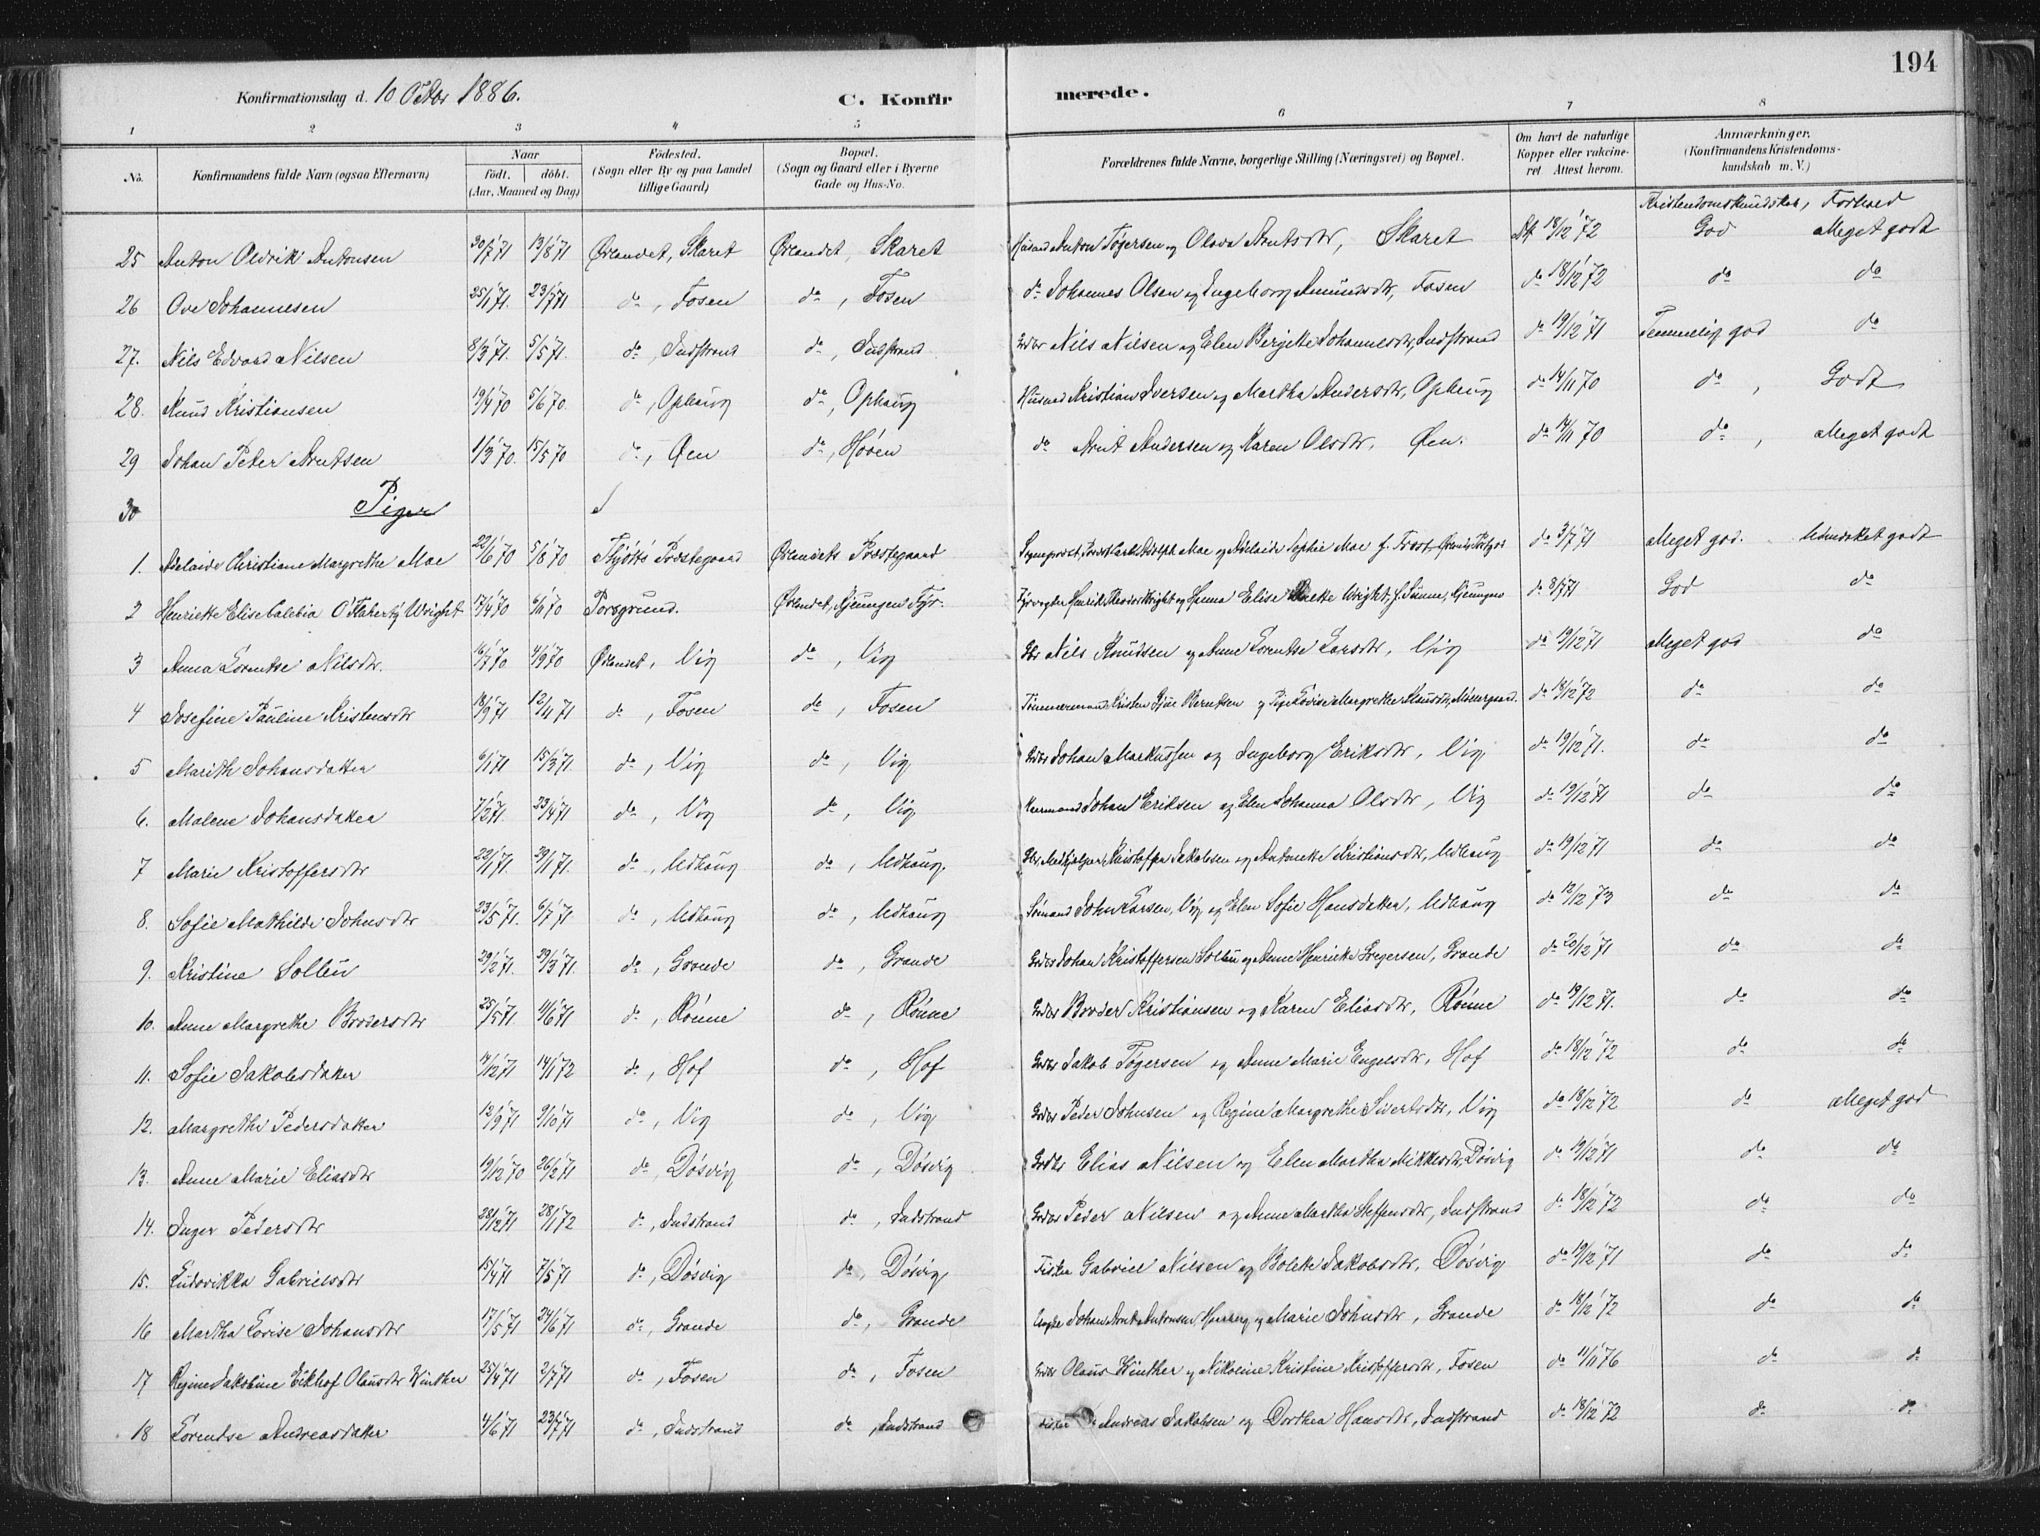 194
Konfirmationsdag d. 10 Octbr 1886. C. Konfirmerede.
1 2 3 4 5 6 7 8
No. Konfirmandens fulde Navn (ogsaa Efternavn) Naar født. døbt. (Aar, Maaned og Dag) Fødested. (Sogn eller By og paa Landet tillige Gaard) Bopæl. (Sogn og Gaard eller i Byerne Gade og Hus-No. Forældrenes fulde Navne, borgerlige Stilling (Næringsvei) og Bopæl. Om havt de naturlige Kopper eller vakcineret Attest herom. Anmærkninger. (Konfirmandens Kristendomskundskab m. V.)
Kristendomskundskab, Forhold
25 Anton Oldrik Antonsen 30/7 71 13/8 71 Ørlandet, Skaret Ørlandet, Skaret Husmd Anton Tøgersen og Olava Arntsdtr, Skaret Att 18/12 72 God Meget godt
26 Ove Johannesen 25/1 71. 23/7 71 do, Fosen do, Fosen do Johannes Olsen og Ingeborg Amundsdtr, Fosen do 18/12 72 do do
27. Nils Edvard Nilsen 8/3 71. 5/5 71. do, Indstrand do, Indstrand Grdbr Nils Nilsen og Elen Birgitte Johannesdtr, Indstrand do 19/12 71 Temmelig god do
28. Knud Kristiansen 19/4 70 5/6 70 do, Ophaug do, Ophaug Husmd Kristian Iversen og Martha Andersdtr, Ophaug do 14/11 70 do, Godt
29 Johan Peter Arntsen 1/3 70. 15/5 70 do, Øen do, Hoven do Arnt Andersen og Karen Olsdtr, Øen. do 14/11 70 do, Meget godt
30 Piger
1. Adelaide Christiane Margrethe Moe 22/6 70 5/8 70 Thjøttø Præstegaard Ørlandets Præstegaard Sogneprest, Carl Adolph Moe og Adelaide Sophie Moe f. Frost, do 3/7 71 Meget god. Udmærket godt
2 Henriette Elise Calebia O'Flaherty Wright 17/4 70 6/11 70 Porsgrund. Ørlandet, Kjeungen Fyr. Fyrvogter Henrik Theodor Wright og Hanna Elise Wright, f. Sunne, Kjeungen do 3/7 71 God do
3 Anna Lorentse Nilsdtr. 16/7 70 4/9 70 Ørlandet, Vig do, Vig Gbr Nils Knudsen og Anne Lorentse Larsdtr, Vig do 19/12 71 Meget god do
4 Josefine Pauline Kristensdtr 18/9 71 12/11 71 do, Fosen do, Fosen Tømmermand Kristen Berntsen og Pige Lovise Margrethe Klausdtr, do 18/12 72 do do
5 Marith Johansdatter 6/1 71 15/3 71. do, Vig do, Vig Grdbr Johan Markussen og Ingeborg Eriksdtr, Vig do 19/12 71. do do
6. Malene Johansdatter 7/2 71. 23/4 71 do, Vig do, Vig Johan Eriksen og Elen Johanna Olsdtr, Vig do 19/12 71 do do
7 Marie Kristoffersdtr 22/1 71. 29/1 71. do, Udhaug do, Udhaug. Kristoffer Jakobsen og Antonette Kristiansdtr, Udhaug do 19/12 71 do do
8. Sofie Mathilde Johnsdtr 23/5 71. 6/7 71 do, Udhaug do, Udhaug Sømand John Larsen, Vig og Elen Sofie Hansdatter, Udhaug do 12/12 73 do do
9. Kristine Sollin 29/2 71. 29/3 71. do, Grande do, Grande Grdbr Johan Kristoffersen Sollin og Anne Henriette Gregersen, Grande do 20/12 71 do do
10. Anne Margrethe Brodersdtr 25/5 71 11/6 71 do, Rønne do, Rønne Grdbr Broder Kristiansen og Karen Eliasdtr, Rønne do 19/12 71. do do
11. Sofie Jakobsdatter 14/12 71 14/1 72 do, Hof do, Hof Grdbr Jakob Tøgersen og Anne Marie Engelsdtr, Hof do 18/12 72 do do
12. Margrethe Pedersdatter 13/9 71 9/10 71 do, Vig do, Vig Grdbr Peder Johnsen og Regine Margrethe Sivertsdtr, Vig do 18/12 72 do Meget god
13. Anne Marie Eliasdtr 19/12 70 26/2 71 do, Døsvig do, Døsvig Grdbr Elias Nilsen og Elen Martha Mikkelsdtr, Døsvig do 19/12 71 do do
14. Inger Pedersdtr 28/12 71 28/1 72 do, Indstrand do, Indstrand Grdbr Peder Nilsen og Anne Martha Steffensdtr, Indstrand do 18/12 72 do do
15. Ludovikka Gabrielsdtr 15/4 71 7/5 71 do, Døsvig do, Døsvig Fisker Gabriel Nilsen og Bolette Jakobsdtr, Døsvig do 19/12 71 do do
16 Martha Lovise Johansdtr 17/5 71 24/6 71 do, Grande do, Grande Ungkr Johan Arnt Antonsen og Marie Johnsdtr, Grande do 18/12 72 do do
17 Regine Jakobine Eckhof Olausdtr Winther 25/4 71 2/7 71 do, Fosen do, Fosen Grdbr Olaus Winther og Nikoline Kristine Kristoffersdtr, Fosen do 11/11 76 do do
18 Lorendse Andreasdatter 4/6 71 23/7 71 do, Indstrand do, Indstrand Fisker Andreas Jakobsen og Dorthea Hansdtr, Indstrand do 18/12 72 do do